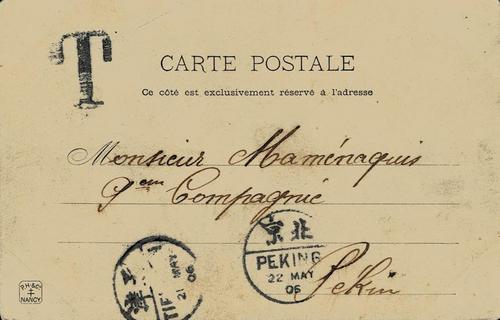 T
CARTE POSTALE
Ce côté est exclusivement réservé à l'adresse
Monsieur Maménaquis
9eme Compagnie
Pékin
京北
PEKING
22 MAY
06
津
TI
21 MAY
06
P.H.& Cie
NANCY